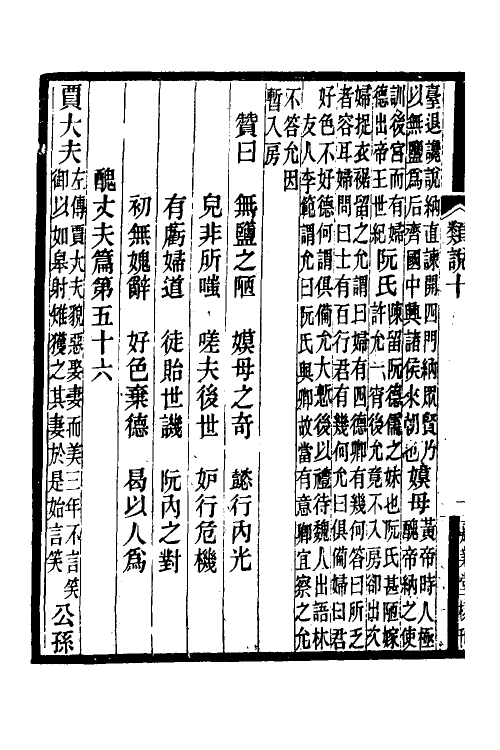 類說十
臺退讒說納直諫開四門納眾賢乃
以無鹽為后齊國中興諸侯來朝也
嫫母
黃帝時人極
醜帝納之使
訓後宮而有婦
德出帝王世紀
阮氏
陳留阮德儒之妹也阮氏甚陋嫁
許允一宵後允竟不入房卻出次
婦捉衣裾留之允謂曰婦有四德卿有幾何答曰所乏
者容耳婦問曰士有百行君有幾何允曰俱備婦曰君
好色不好德何謂俱備允大慙後以禮待魏人出語林
友人李範謂允曰阮氏與卿故當有意卿宜察之允
不答允因
暫入房
贊曰 無鹽之陋 嫫母之奇 懿行內光
皃非所嗤 嗟夫後世 妒行危機
有虧婦道 徒貽世譏 阮內之對
初無媿辭 好色棄德 曷以人為
醜丈夫篇第五十六
賈大夫
左傳賈大夫貌惡娶妻而美三年不言笑
御以如皋射雉獲之其妻於是始言笑
公孫